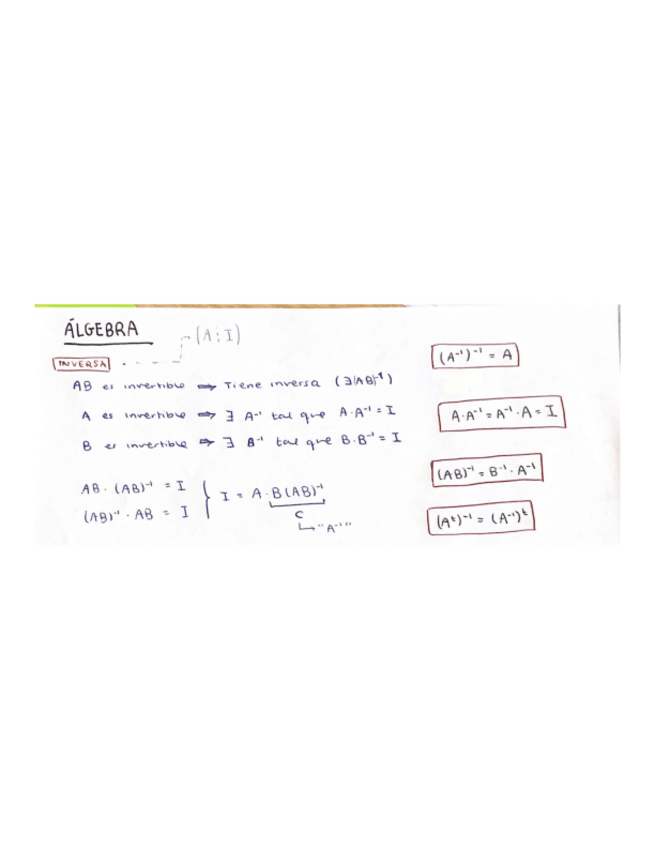 ÁLGEBRA
(A ⋮ I)
INVERSA
AB es invertible ⇒ Tiene inversa (∃(AB)⁻¹)
A es invertible ⇒ ∃ A⁻¹ tal que A·A⁻¹ = I
B es invertible ⇒ ∃ B⁻¹ tal que B·B⁻¹ = I
AB · (AB)⁻¹ = I
(AB)⁻¹ · AB = I
I = A · B(AB)⁻¹
C
↳ "A⁻¹"
(A⁻¹)⁻¹ = A
A·A⁻¹ = A⁻¹·A = I
(AB)⁻¹ = B⁻¹ · A⁻¹
(Aᵗ)⁻¹ = (A⁻¹)ᵗ